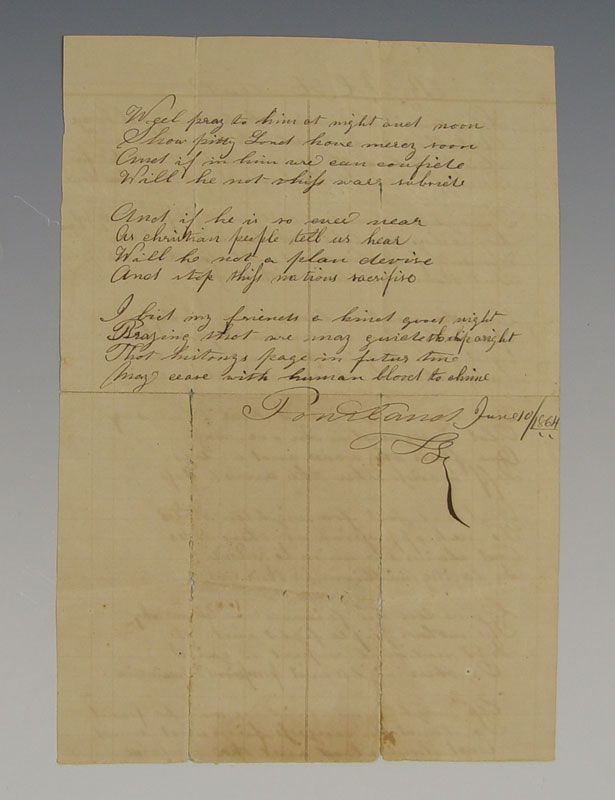 Weel pray to him at night and noon
Show pitty Lord have mercy soon
And if in him we can confide
Will he not thiss war subside
And if he is so ever near
As christian people tell us hear
Will he not a plan devise
And stop thiss nations sacrifise
I bid my friends a kind good night
Praying that we may guide the ship aright
That historys page in future time
May cease with human blood to shine
Portland June 10/1864